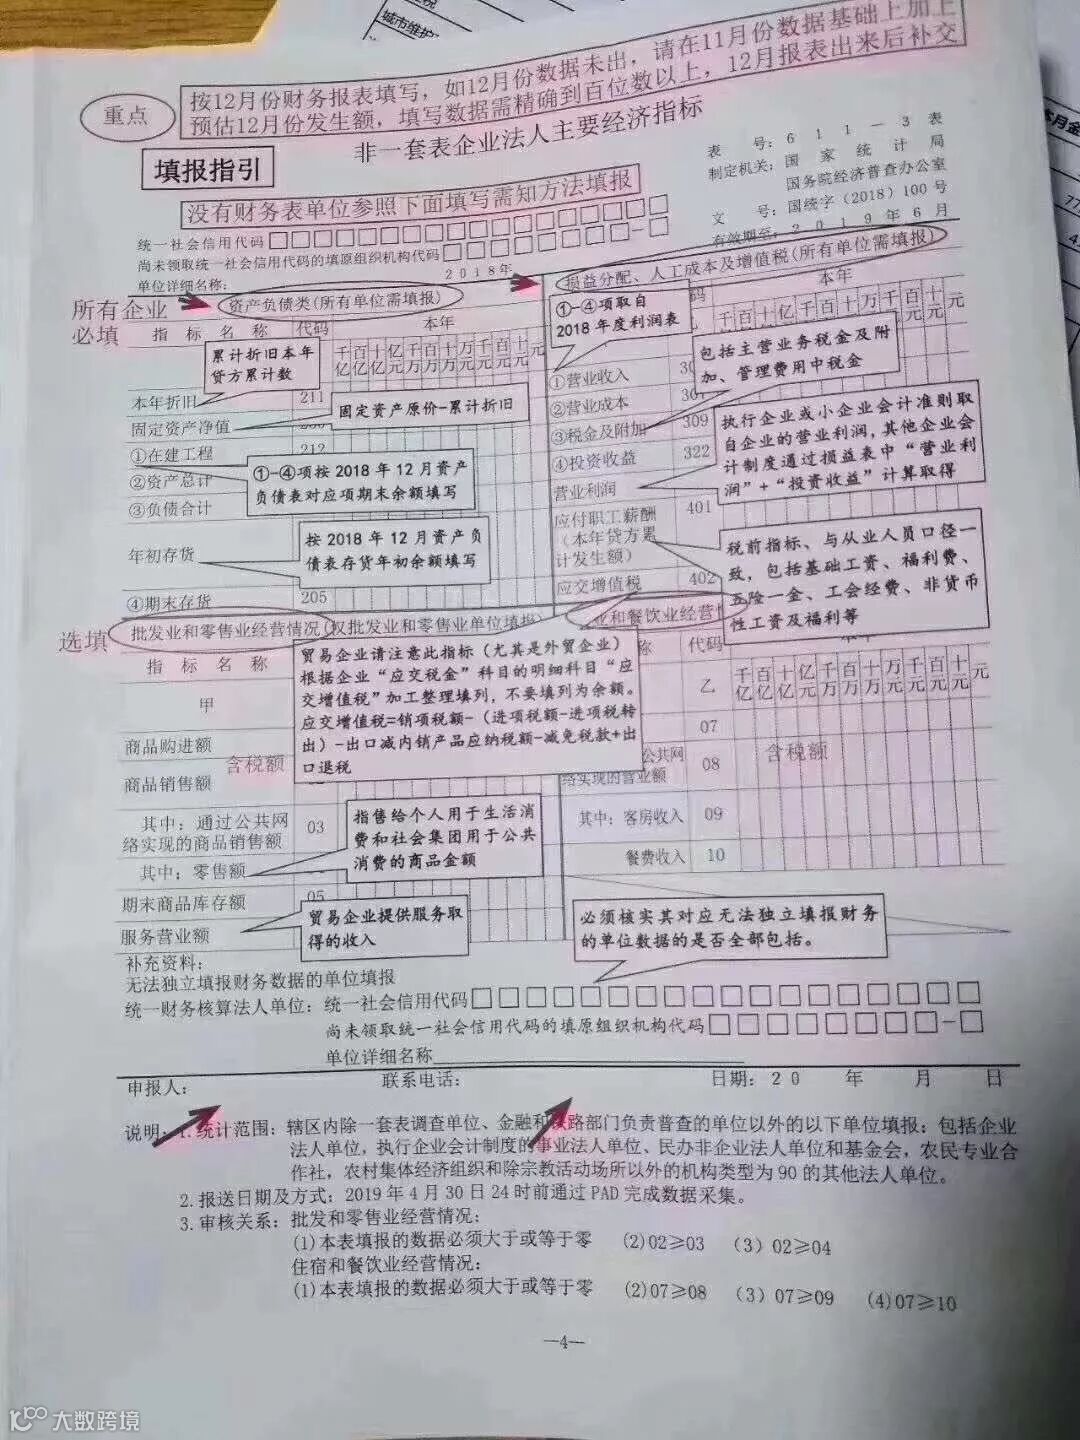 城市维护
重点
按12月份财务报表填写，如12月份数据未出，请在11月份数据基础上加上
预估12月份发生额，填写数据需精确到百位数以上，12月报表出来后补交
非一套表企业法人主要经济指标
填报指引
表 号：611－3表
制定机关：国家统计局
国务院经济普查办公室
文 号：国统字（2018）100号
有效期至：2019年6月
没有财务表单位参照下面填写需知方法填报
统一社会信用代码
尚未领取统一社会信用代码的填原组织机构代码
单位详细名称：
2018年
所有企业
必填
资产负债类(所有单位需填报)
损益分配、人工成本及增值税(所有单位需填报)
指标名称 代码 本年
千亿 百亿 十亿 亿元 千万 百万 十万 万元 千元 百元 十元 元
累计折旧本年
贷方累计数
本年折旧 211
固定资产原价-累计折旧
固定资产净值
①在建工程 212
②资产总计
③负债合计
①-④项按2018年12月资产
负债表对应项期末余额填写
年初存货
按2018年12月资产负
债表存货年初余额填写
④期末存货 205
码 本年
①-④项取自
2018年度利润表
包括主营业务税金及附
加、管理费用中税金
①营业收入
②营业成本
③税金及附加 309
④投资收益 322
营业利润
执行企业或小企业会计准则取
自企业的营业利润,其他企业会
计制度通过损益表中“营业利
润”+“投资收益”计算取得
应付职工薪酬 401
（本年贷方累
计发生额）
应交增值税 402
税前指标、与从业人员口径一
致，包括基础工资、福利费、
五险一金、工会经费、非货币
性工资及福利等
选填
批发业和零售业经营情况(仅批发业和零售业单位填报)
业和餐饮业经营情
指标名称
甲
代码
乙
千亿 百亿 十亿 亿元 千万 百万 十万 万元 千元 百元 十元 元
贸易企业请注意此指标（尤其是外贸企业）
根据企业“应交税金”科目的明细科目“应
交增值税”加工整理填列，不要填列为余额。
应交增值税=销项税额-（进项税额-进项税转
出）-出口减内销产品应纳税额-减免税款+出
口退税
商品购进额
含税额
商品销售额
其中：通过公共网
络实现的商品销售额 03
其中：零售额
期末商品库存额 05
服务营业额
指售给个人用于生活消
费和社会集团用于公共
消费的商品金额
贸易企业提供服务取
得的收入
07
公共网
络实现的营业额 08
含税额
其中：客房收入 09
餐费收入 10
必须核实其对应无法独立填报财务
的单位数据的是否全部包括。
补充资料：
无法独立填报财务数据的单位填报
统一财务核算法人单位：统一社会信用代码
尚未领取统一社会信用代码的填原组织机构代码
单位详细名称
申报人： 联系电话： 日期：20 年 月 日
说明：1.统计范围：辖区内除一套表调查单位、金融和铁路部门负责普查的单位以外的以下单位填报：包括企业
法人单位，执行企业会计制度的事业法人单位、民办非企业法人单位和基金会，农民专业合
作社，农村集体经济组织和除宗教活动场所以外的机构类型为90的其他法人单位。
2.报送日期及方式：2019年4月30日24时前通过PAD完成数据采集。
3.审核关系：批发和零售业经营情况：
(1)本表填报的数据必须大于或等于零 (2)02≥03 (3)02≥04
住宿和餐饮业经营情况：
(1)本表填报的数据必须大于或等于零 (2)07≥08 (3)07≥09 (4)07≥10
—4—
大数跨境